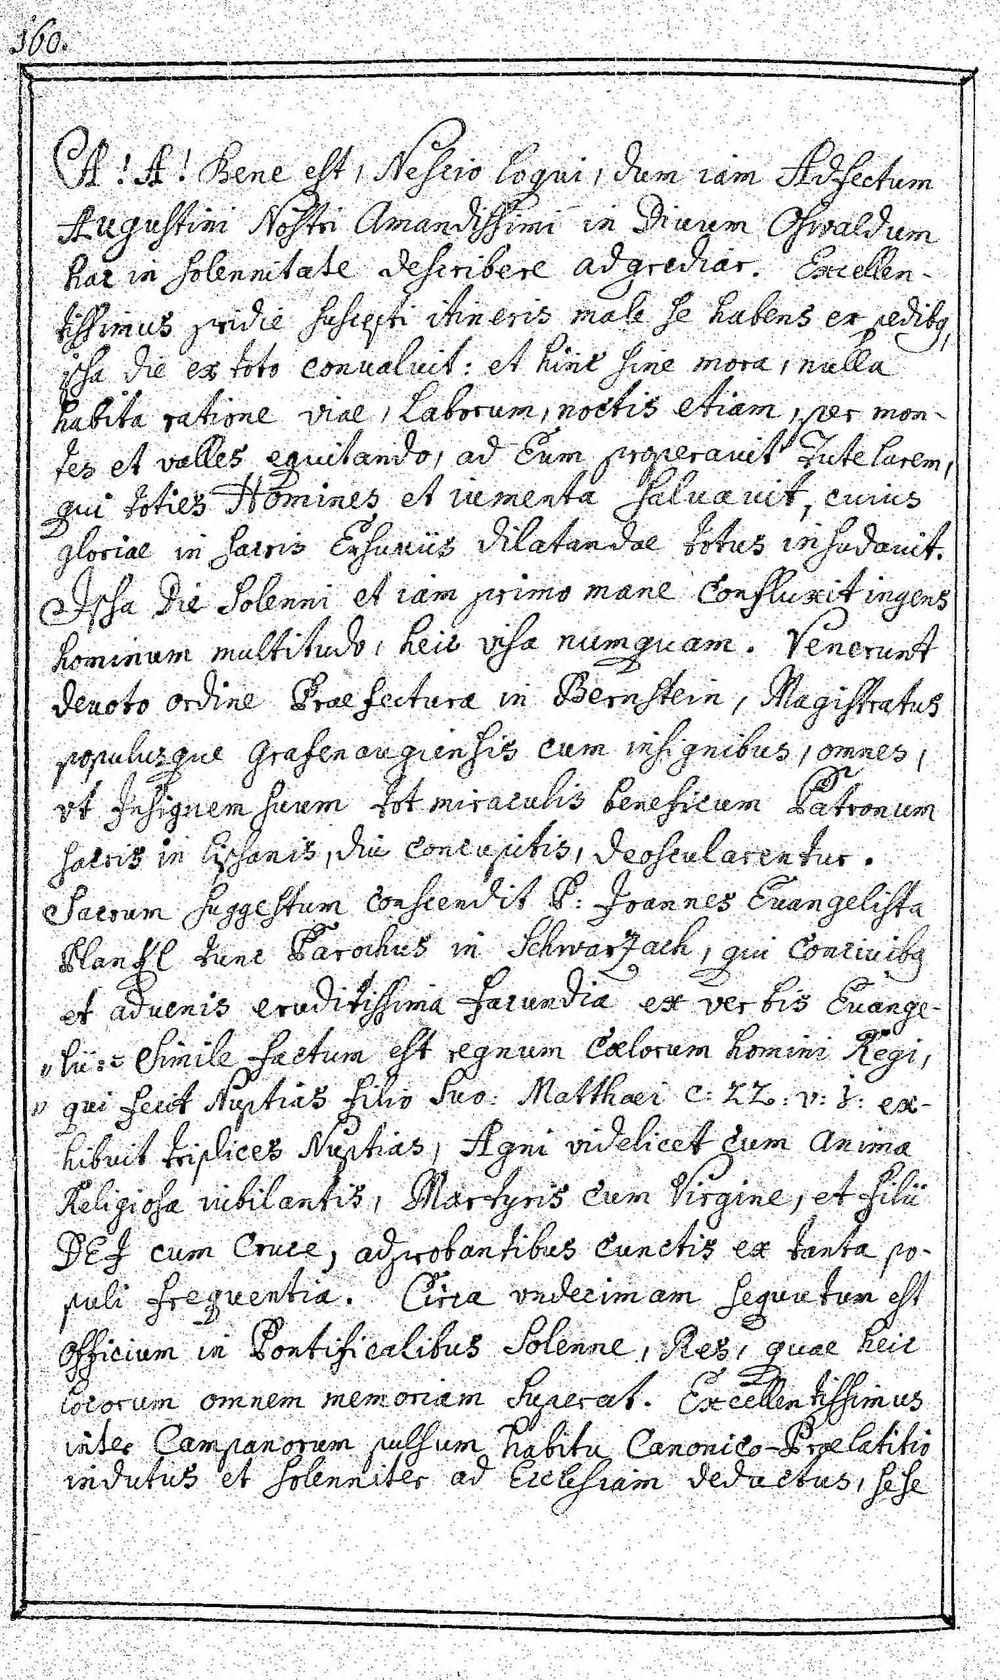 160.
A! A! Bene est, Nescio loqui, dum iam Adfectum
Augustini Nostri Amandissimi in Divum Oswaldum
hac in solennitate describere adgrediar. Excellen-
tissimus pridie suscepti itineris male se habens ex pedibq,
ipsa die ex toto convaluit: et hinc sine mora, nulla
habita ratione viae, laborum, noctis etiam, per mon-
tes et valles equitando, ad Eum properavit Tutelarem,
qui toties Homines et iumenta salvavit, cuius
gloriae in sacris Exuviis dilatandae totus insudavit.
Ipsa Die Solenni et iam primo mane Confluxit ingens
hominum multitudo, heic visa numquam. Venerunt
devoto ordine Praefectura in Bernstein, Magistratus
populusque Grafenaugiensis cum insignibus, omnes,
vt Insignem suum tot miraculis beneficum Patronum
sacris in Lipsanis, diu concupitis, deoscularentur.
Sacrum suggestum conscendit P: Joannes Evangelista
tunc Parochus in Schwarzach, qui Concivibq
et advenis eruditissima facundia ex verbis Evange-
„ lii := Simile factum est regnum Caelorum homini Regi,
„ qui fecit Nuptias filio Suo: Matthaei C: 22: v: 1: ex-
hibuit triplices Nuptias, Agni videlicet cum anima
Religiosa iubilantis, Martyris cum Virgine, et filii
DEI cum Cruce, adprobantibus cunctis ex tanta po-
puli frequentia. Circa vndecimam sequutum est
Officium in Pontificalibus Solenne, Res, quae heic
locorum omnem memoriam superat. Excellentissimus
inter Campanorum pulsum habitu Canonico-Praelatitio
indutus et solenniter ad Ecclesiam deductus, sese